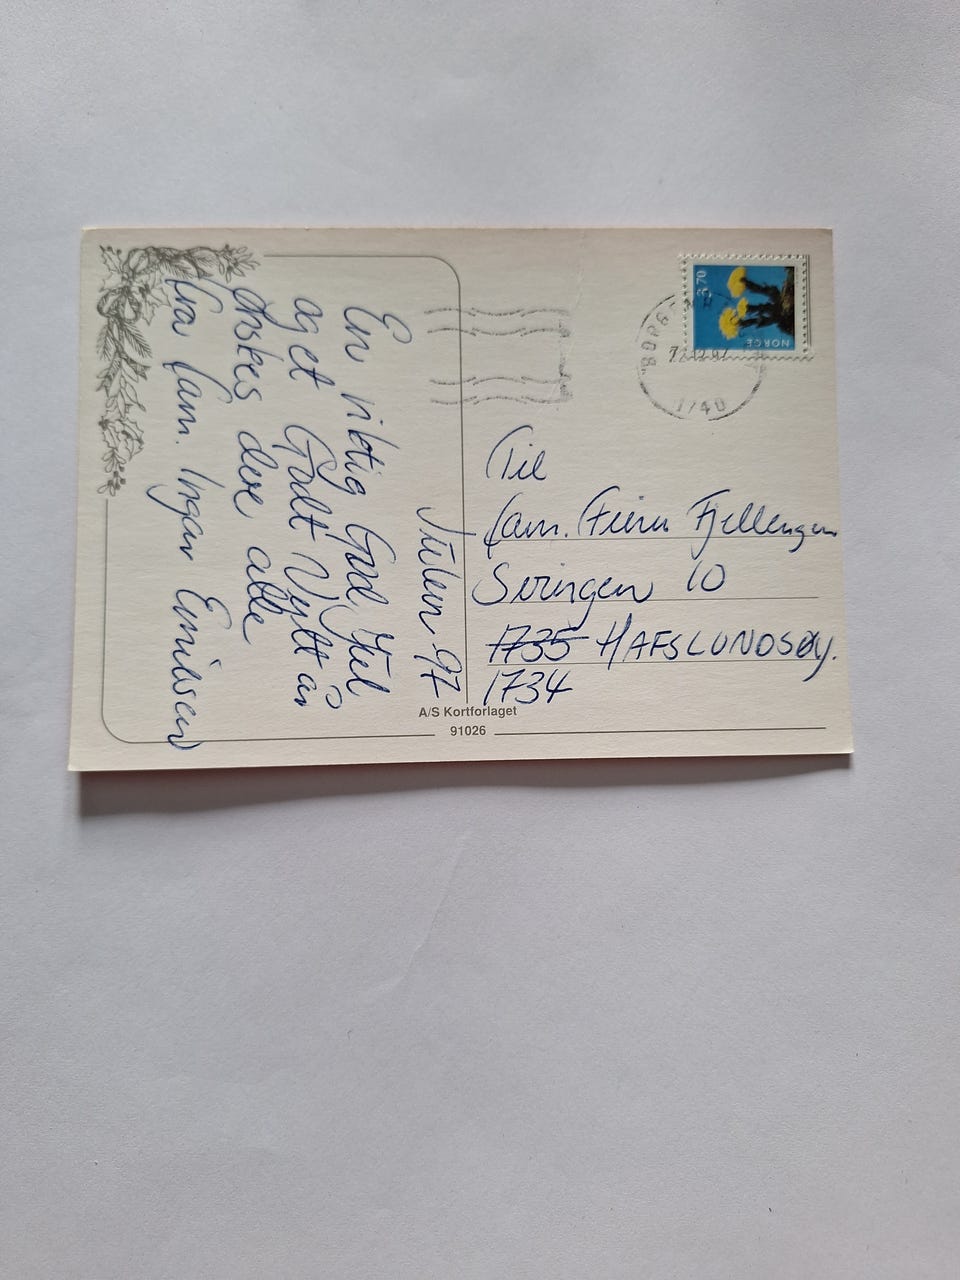 Julen 97
En riktig God Jul
og et Godt Nytt år
ønskes dere alle
fra fam. Ingar Emilsen
NORGE
3.70
22.12.97
1740
Til
fam. Fjellengen
Siringen 10
1735 HAFSLUNDSØY.
1734
A/S Kortforlaget
91026